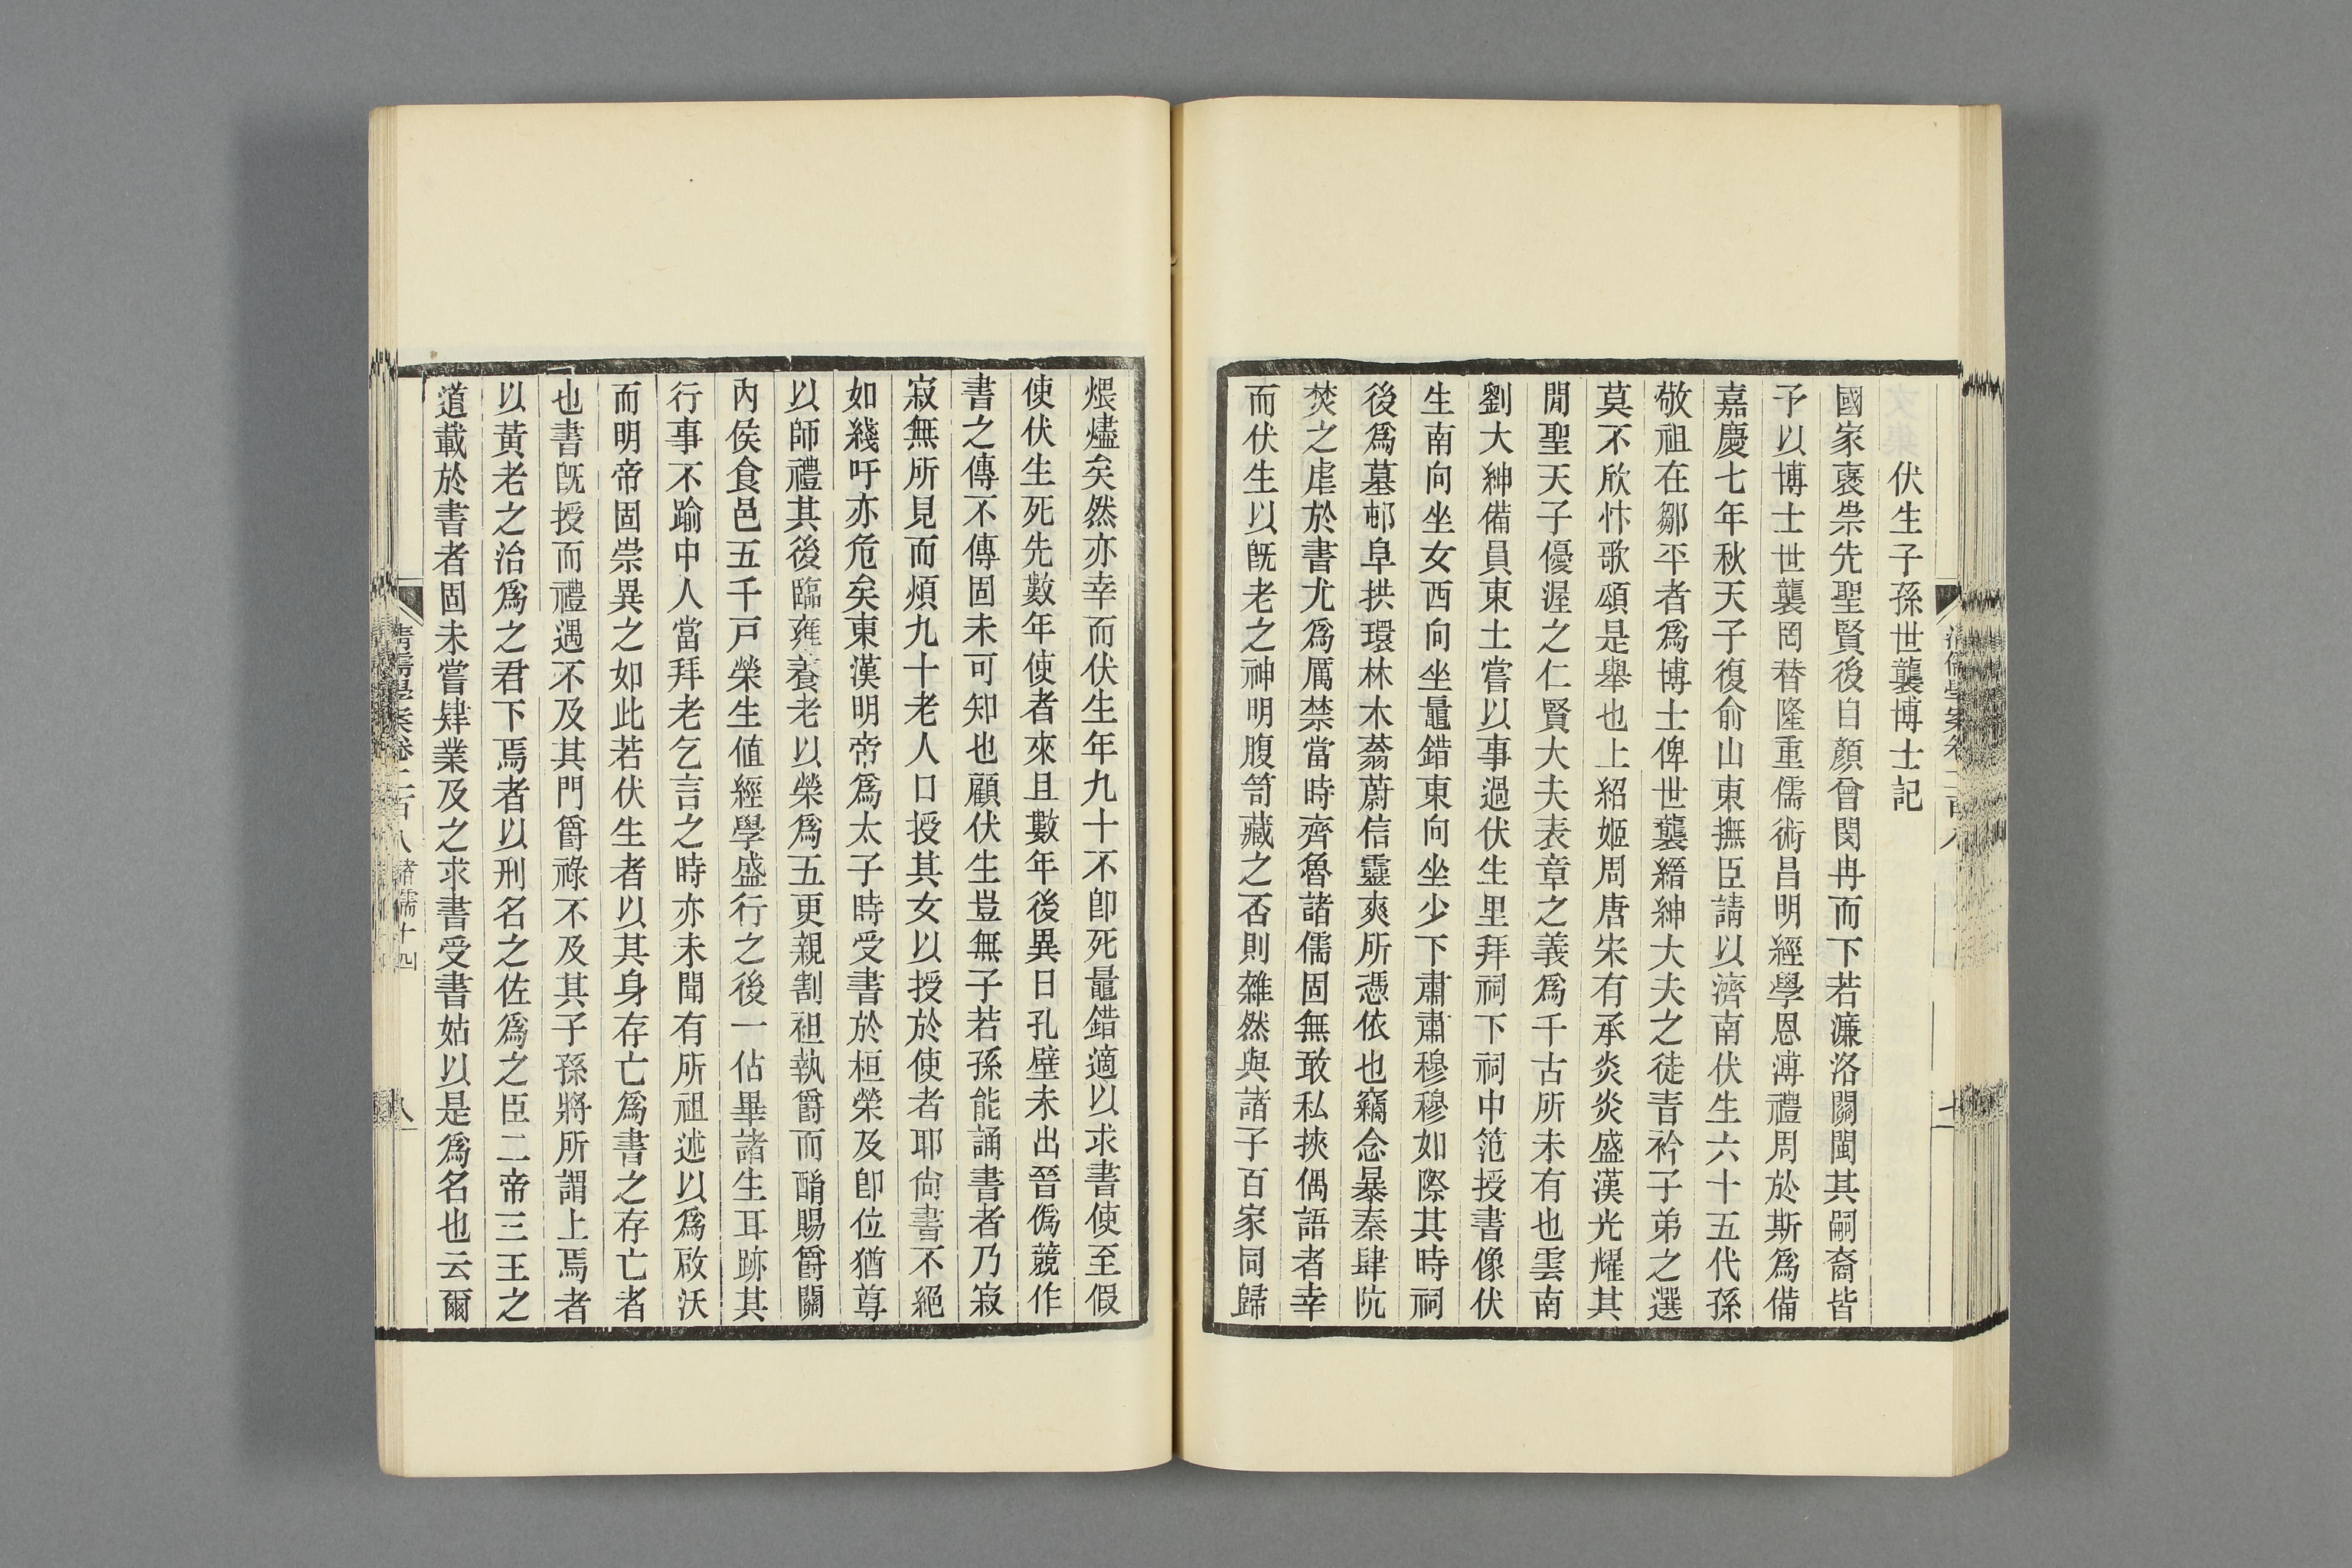 伏生子孫世襲博士記
國家褒崇先聖賢後自顏曾閔冉而下若濂洛關閩其嗣裔皆
予以博士世襲罔替隆重儒術昌明經學恩溥禮周於斯爲備
嘉慶七年秋天子復俞山東撫臣請以濟南伏生六十五代孫
敬祖在鄒平者爲博士俾世襲縉紳大夫之徒青衿子弟之選
莫不欣忭歌頌是舉也上紹姬周唐宋有承炎炎盛漢光耀其
閒聖天子優渥之仁賢大夫表章之義爲千古所未有也雲南
劉大紳備員東土嘗以事過伏生里拜祠下祠中笵授書像伏
生南向坐女西向坐鼂錯東向坐少下肅肅穆穆如際其時祠
後爲墓邨阜拱環林木蓊蔚信靈爽所憑依也竊念暴秦肆阬
焚之虐於書尤爲厲禁當時齊魯諸儒固無敢私挾偶語者幸
而伏生以旣老之神明腹笥藏之否則雜然與諸子百家同歸
清儒學案卷二百八
七
煨燼矣然亦幸而伏生年九十不卽死鼂錯適以求書使至假
使伏生死先數年使者來且數年後異日孔壁未出晉僞競作
書之傳不傳固未可知也顧伏生豈無子若孫能誦書者乃寂
寂無所見而煩九十老人口授其女以授於使者耶尙書不絕
如綫吁亦危矣東漢明帝爲太子時受書於桓榮及卽位猶尊
以師禮其後臨雍養老以榮爲五更親割袒執爵而酳賜爵關
內侯食邑五千戸榮生値經學盛行之後一佔畢諸生耳跡其
行事不踰中人當拜老乞言之時亦未聞有所祖述以爲啟沃
而明帝固崇異之如此若伏生者以其身存亡爲書之存亡者
也書旣授而禮遇不及其門爵祿不及其子孫將所謂上焉者
以黃老之治爲之君下焉者以刑名之佐爲之臣二帝三王之
道載於書者固未嘗肄業及之求書受書姑以是爲名也云爾
清儒學案卷二百八 諸儒十四
八